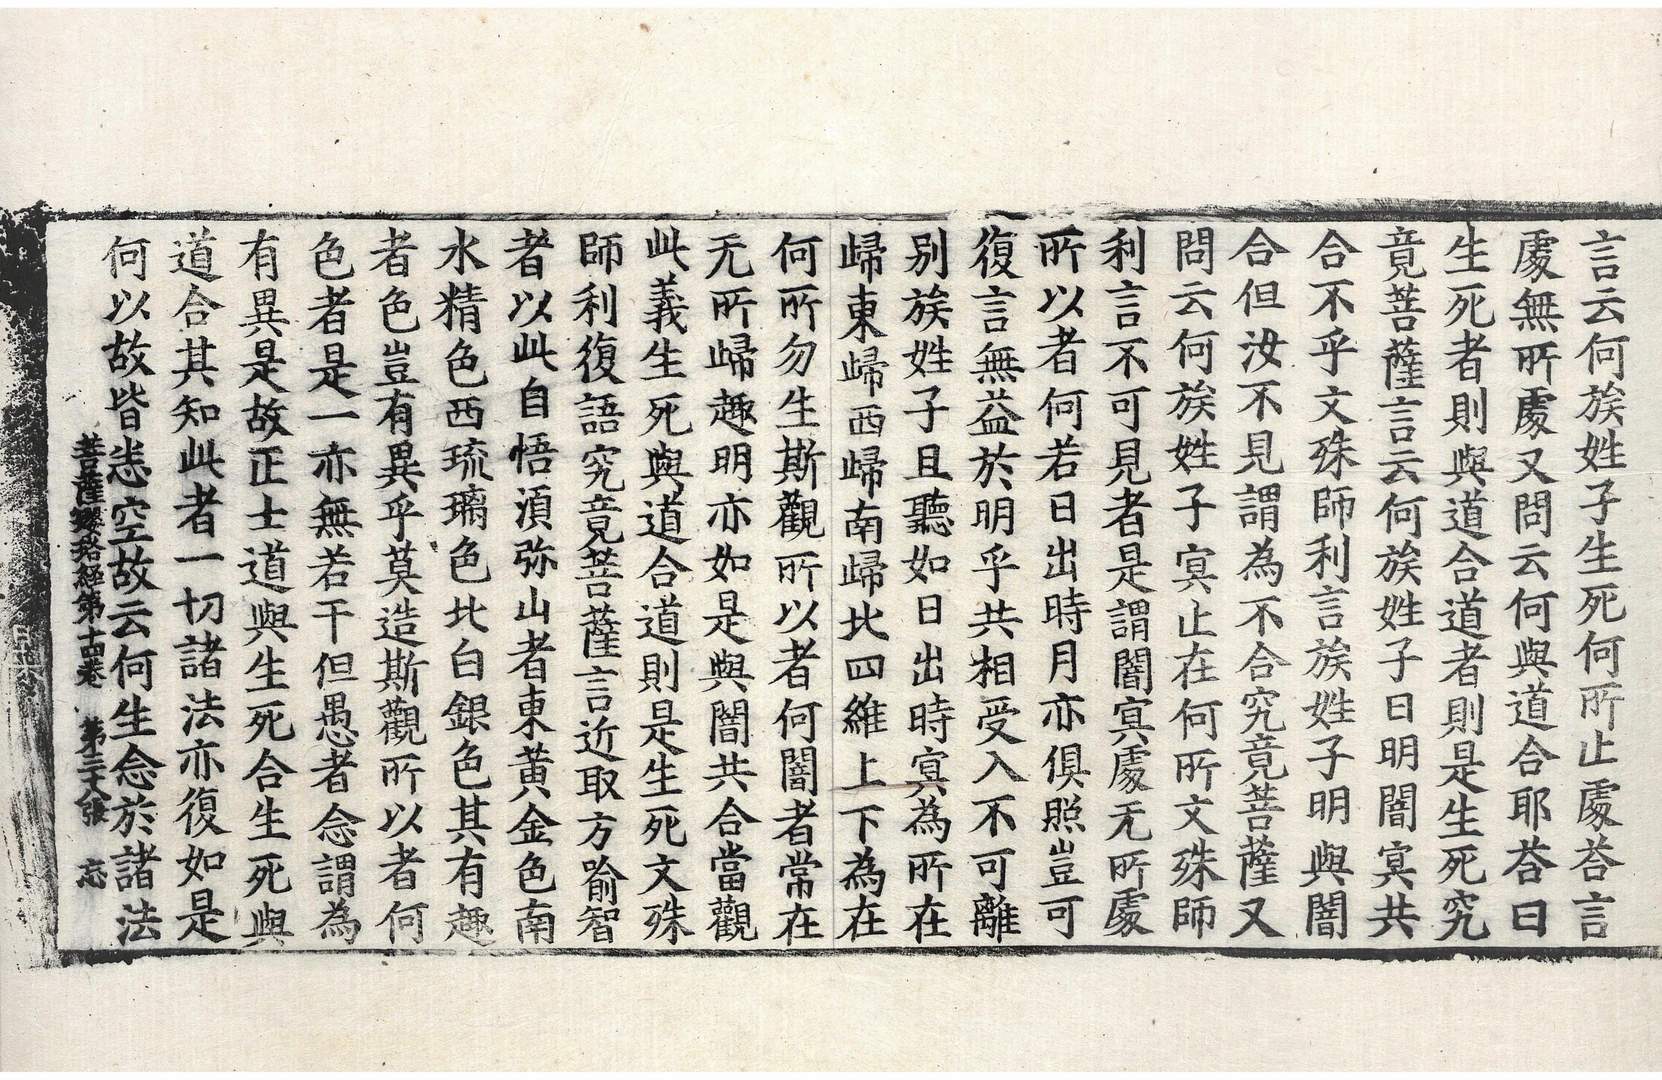 言云何族姓子生死何所止處荅言
處無所處又問云何與道合耶荅曰
生死者則與道合道者則是生死究
竟菩薩言云何族姓子日明闇冥共
合不乎文殊師利言族姓子明與闇
合但汝不見謂為不合究竟菩薩又
問云何族姓子冥止在何所文殊師
利言不可見者是謂闇冥處无所處
所以者何若日出時月亦俱照豈可
復言無益於明乎共相受入不可離
別族姓子且聽如日出時冥為所在
歸東歸西歸南歸北四維上下為在
何所勿生斯觀所以者何闇者常在
无所歸趣明亦如是與闇共合當觀
此義生死與道合道則是生死文殊
師利復語究竟菩薩言近取方喻智
者以此自悟湏弥山者東黃金色南
水精色西琉璃色北白銀色其有趣
者色豈有異乎莫造斯觀所以者何
色者是一亦無若干但愚者念謂為
有異是故正士道與生死合生死與
道合其知此者一切諸法亦復如是
何以故皆悉空故云何生念於諸法
菩薩瓔珞経第十四卷 第二丈張 忘